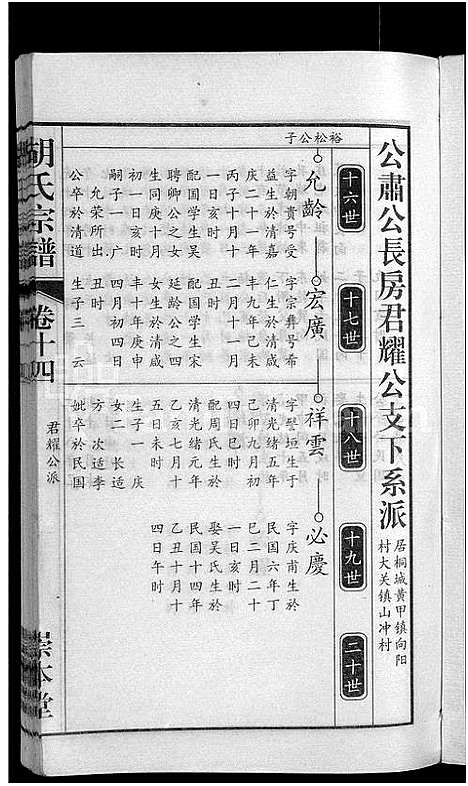 公肅公長房君耀公支下系派
居桐城黃甲镇向阳
村大关镇山冲村
十六世
十七世
十八世
十九世
二十世
裕松公子
允齡
宏廣
祥雲
必慶
字朝貴号受
益生於嘉慶
慶二十一年
丙子十月十
一日亥時
配国学生吴
聘卿公之女
生同庚十月
初一日亥時
嗣子一 广
允荣所出
公卒於清道
字宗彝号希
仁生於清咸
丰九年己未
二月十一月
丑時
配国学生宋
廷龄公之四
女生於清咸
丰十年庚申
四月初四日
丑時
生子三 云
字譽垣生于
清光緒五年
己卯九月初
四日巳时
配周氏生於
清光緒元年
乙亥七月十
五日未时
生子一 庆
女二 长适
方 次适李
妣卒於民国
字庆甫生於
民国六年丁
巳二月二十
一日亥时
娶吴氏生於
民国十四年
乙丑十月十
四日午时
胡氏宗譜
卷十四
君耀公派
崇本堂